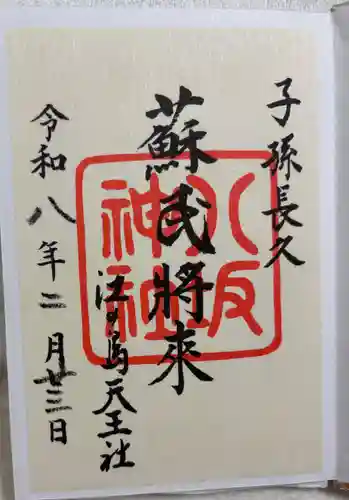 子孫長久
蘇民將來
八坂神社
江の島天王社
令和八年二月廿三日